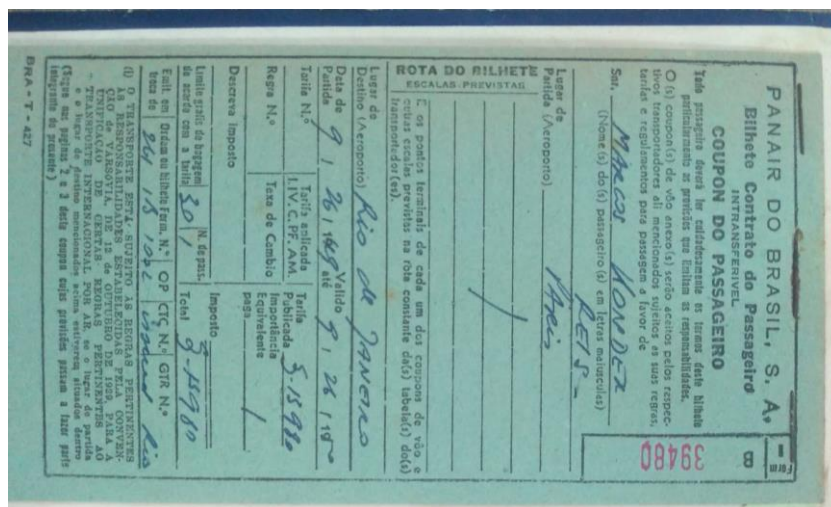 PANAIR DO BRASIL, S. A.
Form
B
Bilhete Contrato de Passageiro
INTRANSFERIVEL
39480
COUPON DO PASSAGEIRO
Todo passageiro deverá ler cuidadosamente os termos deste bilhete
particularmente as provisões que limitam as responsabilidades.
O (s) coupon(s) de vôo anexo(s) serão aceitos pelos respec-
tivos transportadores ali mencionados sujeitos as suas regras,
tarifas e regulamentos para passagem a favor de
Snr. MARCOS KONDER
REIS
(Nome(s) do(s) passageiro(s) em letras maiusculas)
Lugar de
Partida (Aeroporto) PARIS
ROTA DO BILHETE
ESCALAS PREVISTAS
E os pontos terminais de cada um dos coupons de vôo e
outras escalas previstas na rota constante do(s) tabela(s) do(s)
transportador(es).
Lugar de
Destino (Aeroporto) Rio de JANEIRO
Data de
Partida 9 / 26 / 1949 Valido até 9 / 26 / 1950
Tarifa N.º
Tarifa aplicada
I.IV.C.PF.AM.
Tarifa
Publicada
Regra N.º
Taxa de Cambio
Importância
Equivalente
paga
Descreva Imposto
Imposto
Limite gratis de bagagem
de acordo com a tarifa 30
N. de pass. 1
Total
Emit. em
troca de
Ordem ou bilhete Form. N.º
OP
CTC N.º
GTR N.º
Rio
(1) O TRANSPORTE ESTA' SUJEITO ÀS REGRAS PERTINENTES
AS RESPONSABILIDADES ESTABELECIDAS PELA CONVEN-
ÇÃO de VARSOVIA, DE 12 de OUTUBRO DE 1929, PARA A
UNIFICAÇÃO DE CERTAS REGRAS PERTINENTES AO
TRANSPORTE INTERNACIONAL POR AR, se o lugar de partida
e o lugar de destino mencionados acima estiverem situados dentro
(Segue nas paginas 2 e 3 deste coupon cujas provisões passam a fazer parte
integrante do presente)
BRA - T - 427